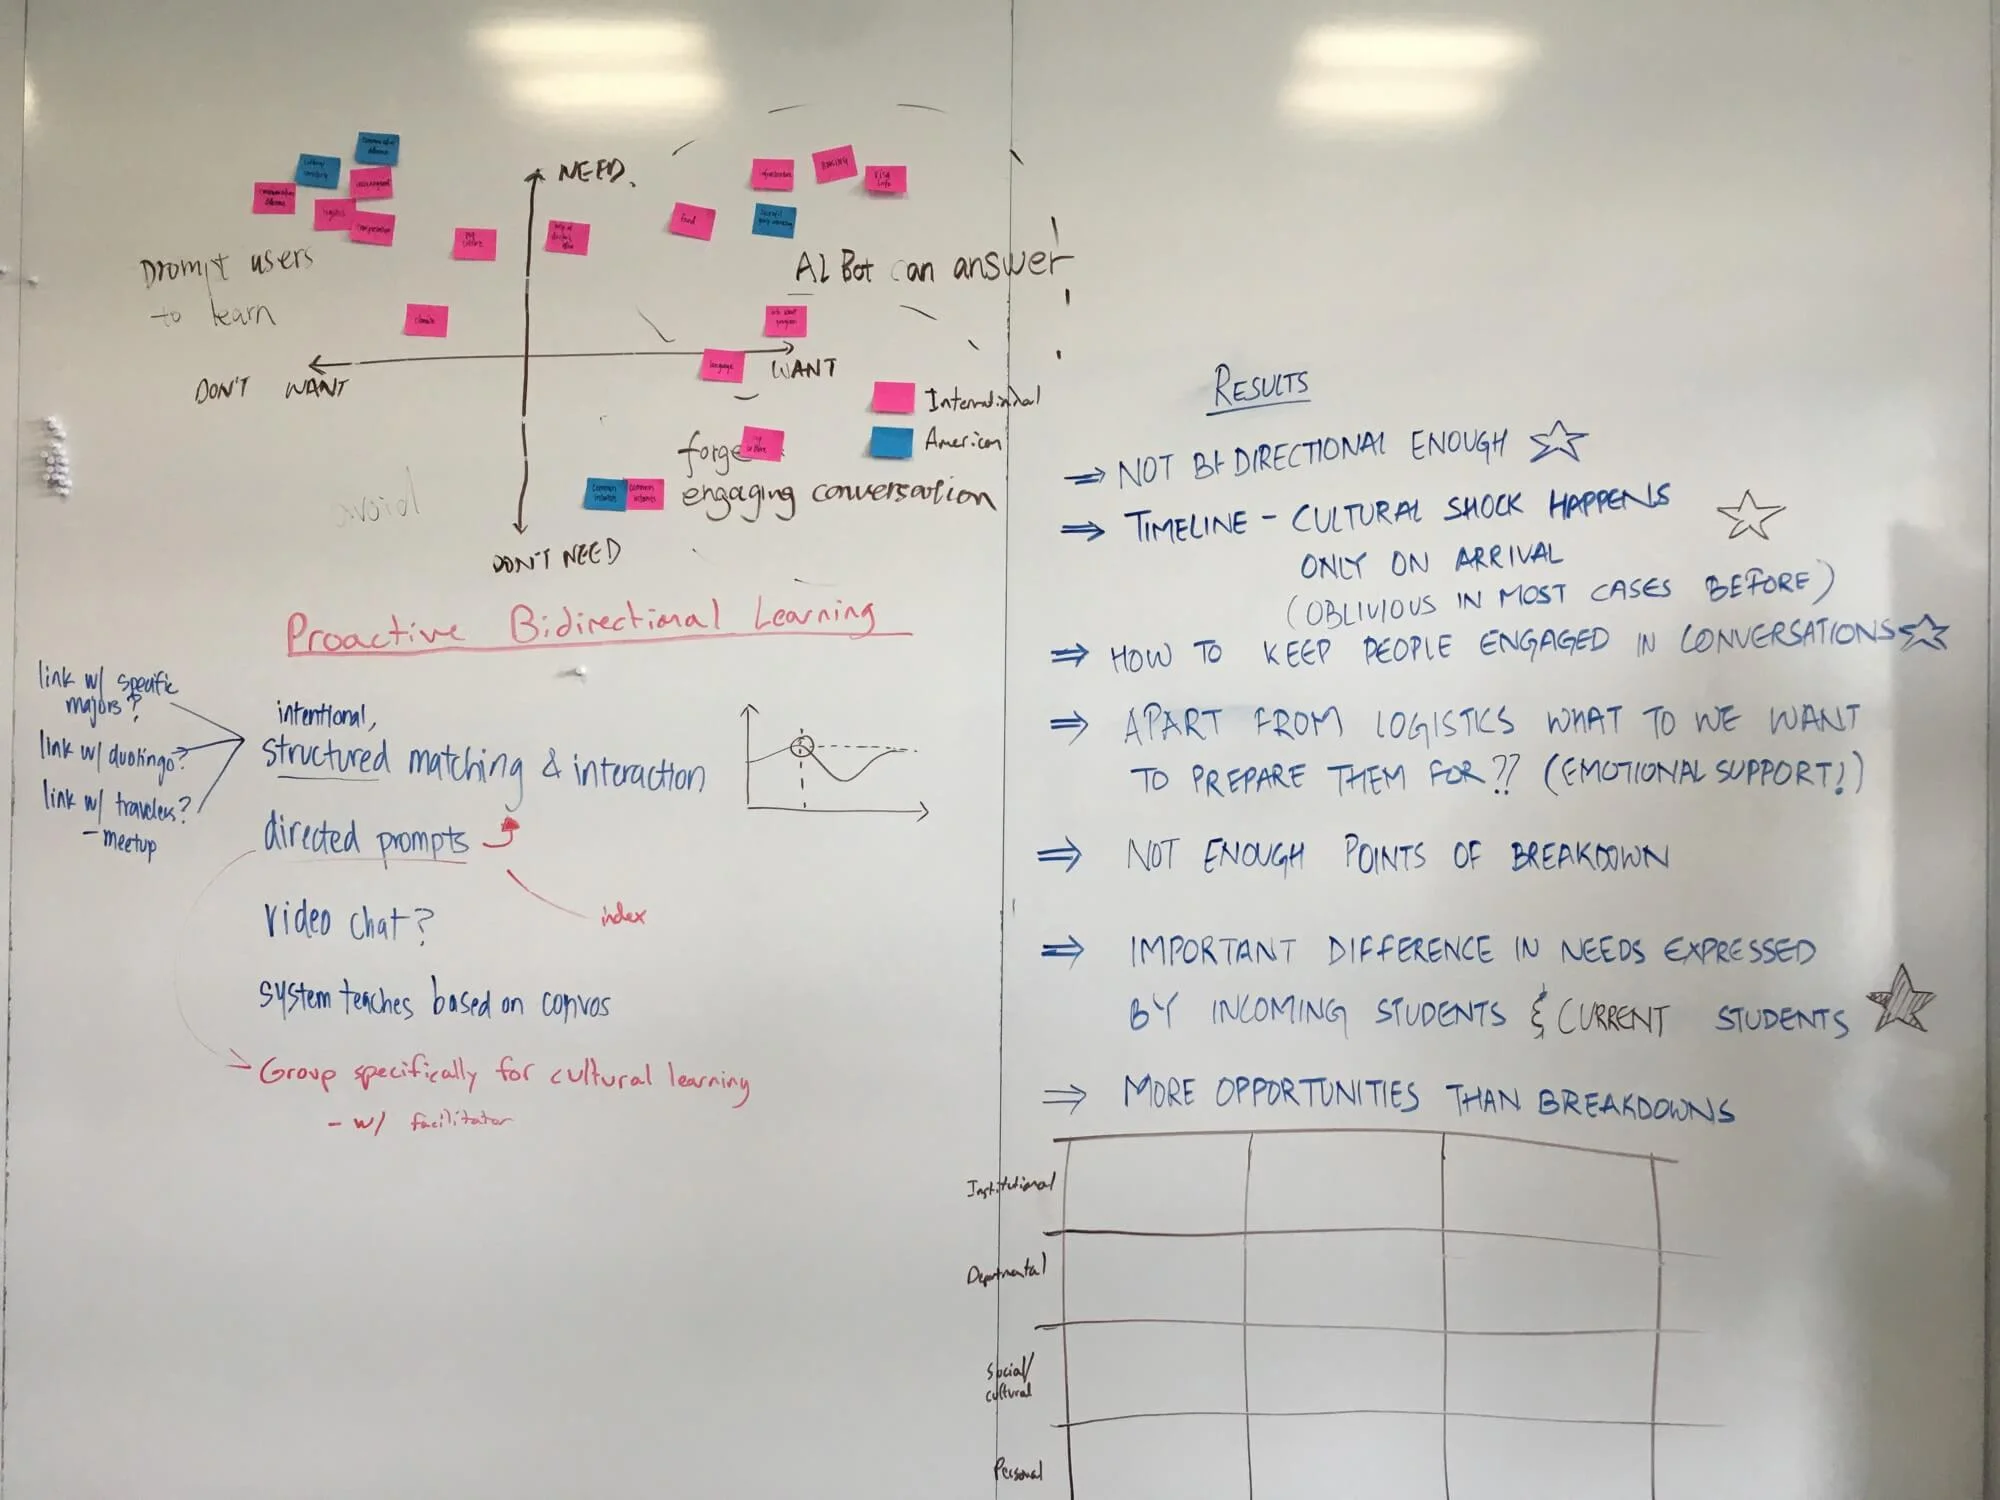 NEED.
BANKING
VISA
info
food
Prompt users
to learn
AI Bot can answer
climate
language
WANT
DON'T WANT
International
American
forge
engaging conversation
common
interests
common
interests
avoid
DON'T NEED
Proactive Bidirectional Learning
link w/ specific
majors?
link w/ duolingo?
link w/ travelers?
- meetup
intentional,
structured matching & interaction
directed prompts
index
video chat?
system teaches based on convos
Group specifically for cultural learning
- w/ facilitator
RESULTS
⇒ NOT BI-DIRECTIONAL ENOUGH
⇒ TIMELINE - CULTURAL SHOCK HAPPENS
ONLY ON ARRIVAL
(OBLIVIOUS IN MOST CASES BEFORE)
⇒ HOW TO KEEP PEOPLE ENGAGED IN CONVERSATIONS
⇒ APART FROM LOGISTICS WHAT TO WE WANT
TO PREPARE THEM FOR?? (EMOTIONAL SUPPORT!)
⇒ NOT ENOUGH POINTS OF BREAKDOWN
⇒ IMPORTANT DIFFERENCE IN NEEDS EXPRESSED
BY INCOMING STUDENTS & CURRENT STUDENTS
⇒ MORE OPPORTUNITIES THAN BREAKDOWNS
Institutional
Departmental
Social/
cultural
Personal